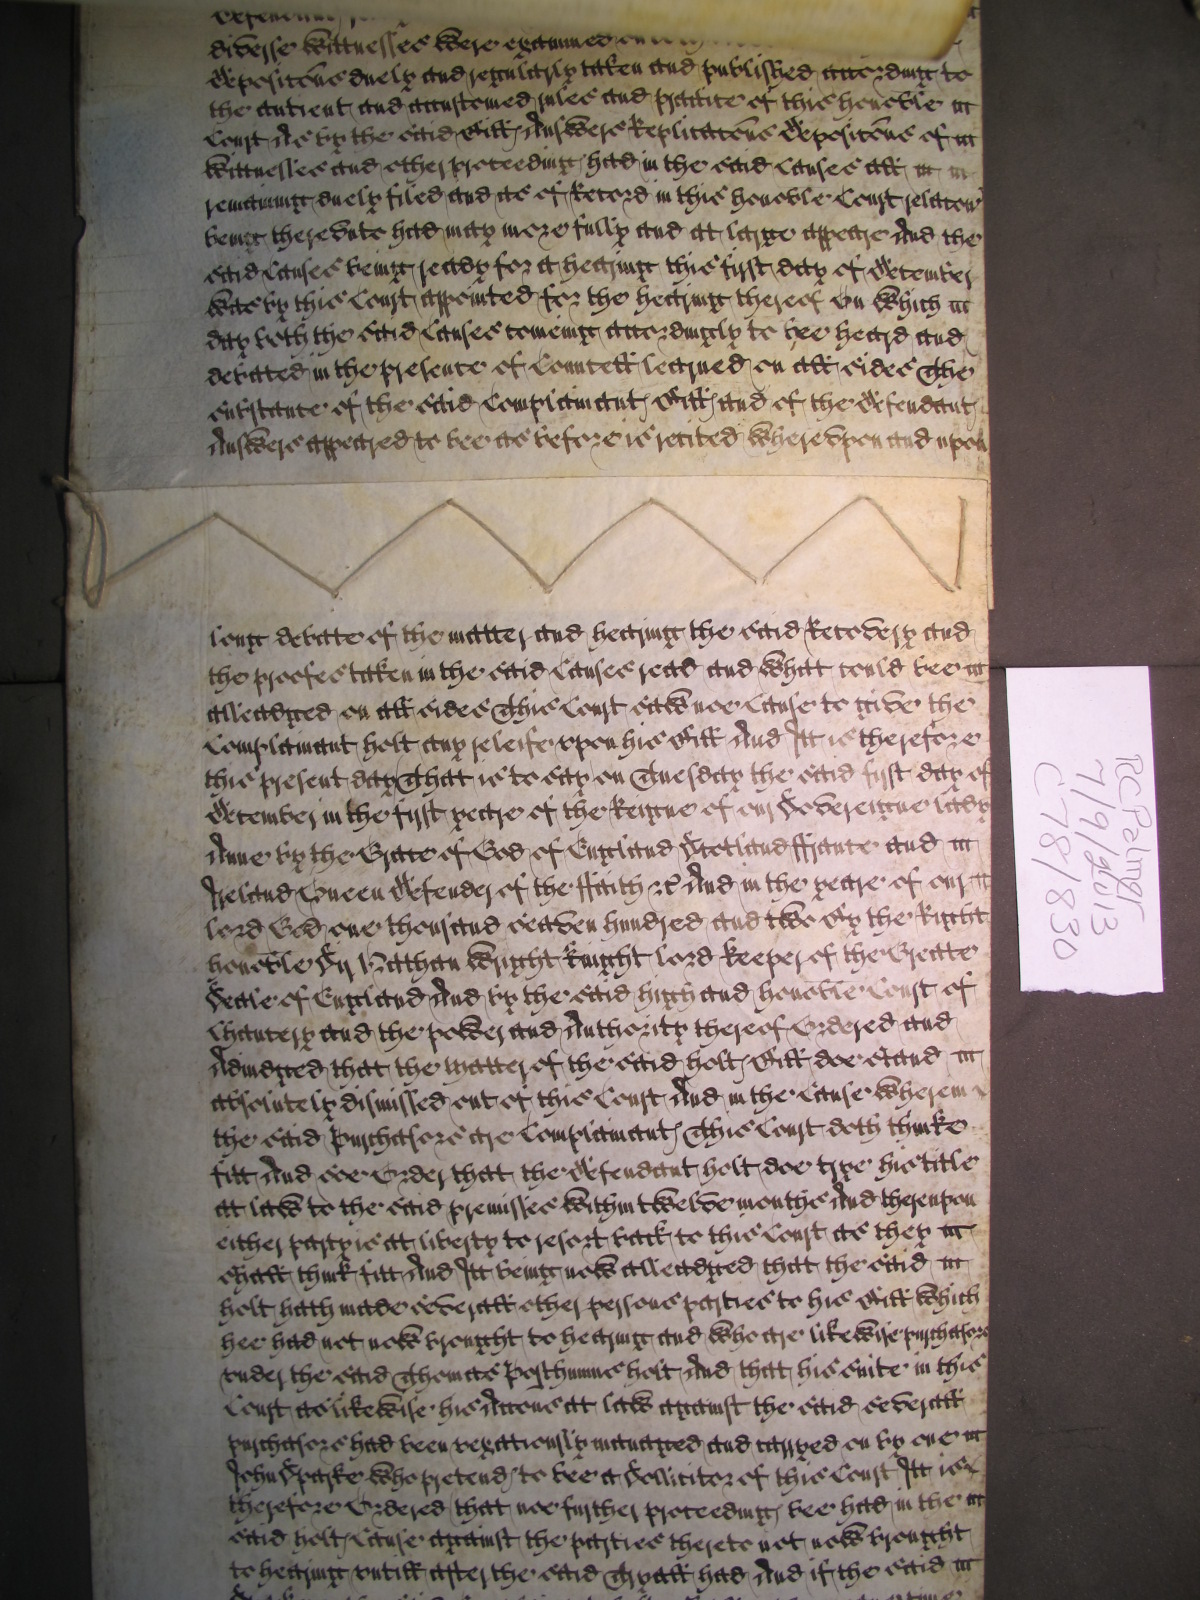 diverse Wittnesses were examined
deposicōns duely and regularly taken and published according to
the antient and accustomed rules and practice of this honoble
Court As by the said Bill Answers Replicacōns Deposicōns of
Wittnesses and other proceedings had in the said Causes all
remaining duely filed and as of Record in this honoble Court relacōn
being thereunto had may more fully and at large appeare And the
said Causes being ready for a hearing this first day of December
was by this Court appointed for the hearing thereof On which
day both the said Causes comeing accordingly to bee heard and
debated in the presence of Councell learned on all sides The
substance of the said Complainants Bill and of the Defendants
Answers appeared to bee as before is recited Whereupon and upon
long debate of the matter and hearing the said Recovery and
the proofes taken in the said Causes read and what could bee
alleadged on all sides This Court saw noe Cause to give the
Complainant holt any releife upon his Bill And Itt is therefore
this present day That is to say on Tuesday the said first day of
December in the first yeare of the Reigne of our Sovereigne Lady
Anne by the Grace of God of England Scotland ffrance and
Ireland Queen Defender of the ffaith &c And in the yeare of our
Lord God one thousand seaven hundred and two By the Right
honoble Sir Nathan Wright Knight Lord Keeper of the Greate
Seale of England And by the said high and honoble Court of
Chancery and the power and Authority thereof Ordered and
Adiudged that the matter of the said holts Bill doe stand
absolutely dismissed out of this Court And in the Cause wherein
the said Purchasors are Complainants This Court doth thinke
fitt And soe Order that the Defendant holt doe trye his title
at law to the said premisses within twelve months And thereupon
either party is at liberty to resort back to this Court as they
shall think fitt And Itt being now alleadged that the said
holt hath made severall other persons parties to his Bill which
hee had not now brought to hearing and who are likewise purchasors
under the said Thomas Posthumus holt And that his suite in this
Court as likewise his Acc̄ons at law against the said severall
purchasors had been vexatiously managed and carryed on by one
John Sparke who pretends to bee a Sollicitor of this Court Itt is
therefore Ordered that noe further proceedings bee had in the
said holts Cause against the parties thereto not now brought
to hearing untill after the said Tryall had And if the said
RCPalmer
7/9/2013
C78/830